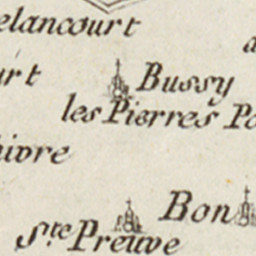 elancourt
urt
Bussy
les Pierres Po
hivre
Bon
Ste Preuve